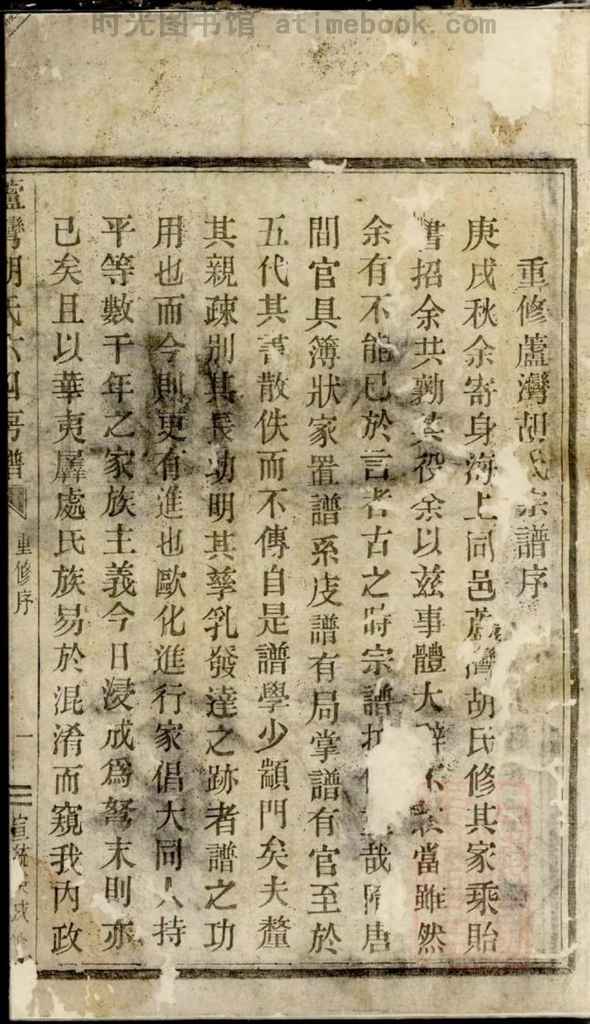 时光图书馆 atimebook.com
重修蘆灣胡氏宗譜序
庚戌秋余寄身海上同邑蘆灣胡氏修其家乘貽
書招余共勷其役余以兹事體大辭不當雖然
余有不能已於言者古之時宗譜哉隋唐
間官具簿狀家置譜系庋譜有局掌譜有官至於
五代其書散佚而不傳自是譜學少顓門矣夫釐
其親疎別其長幼明其孳乳發達之跡者譜之功
用也而今則更有進也歐化進行家倡大同人持
平等數千年之家族主義今日浸成為弩末則亦
已矣且以華夷羼處氏族易於混淆而窺我内政
蘆灣胡氏六四房譜 重修序 一 宣統庚戌修